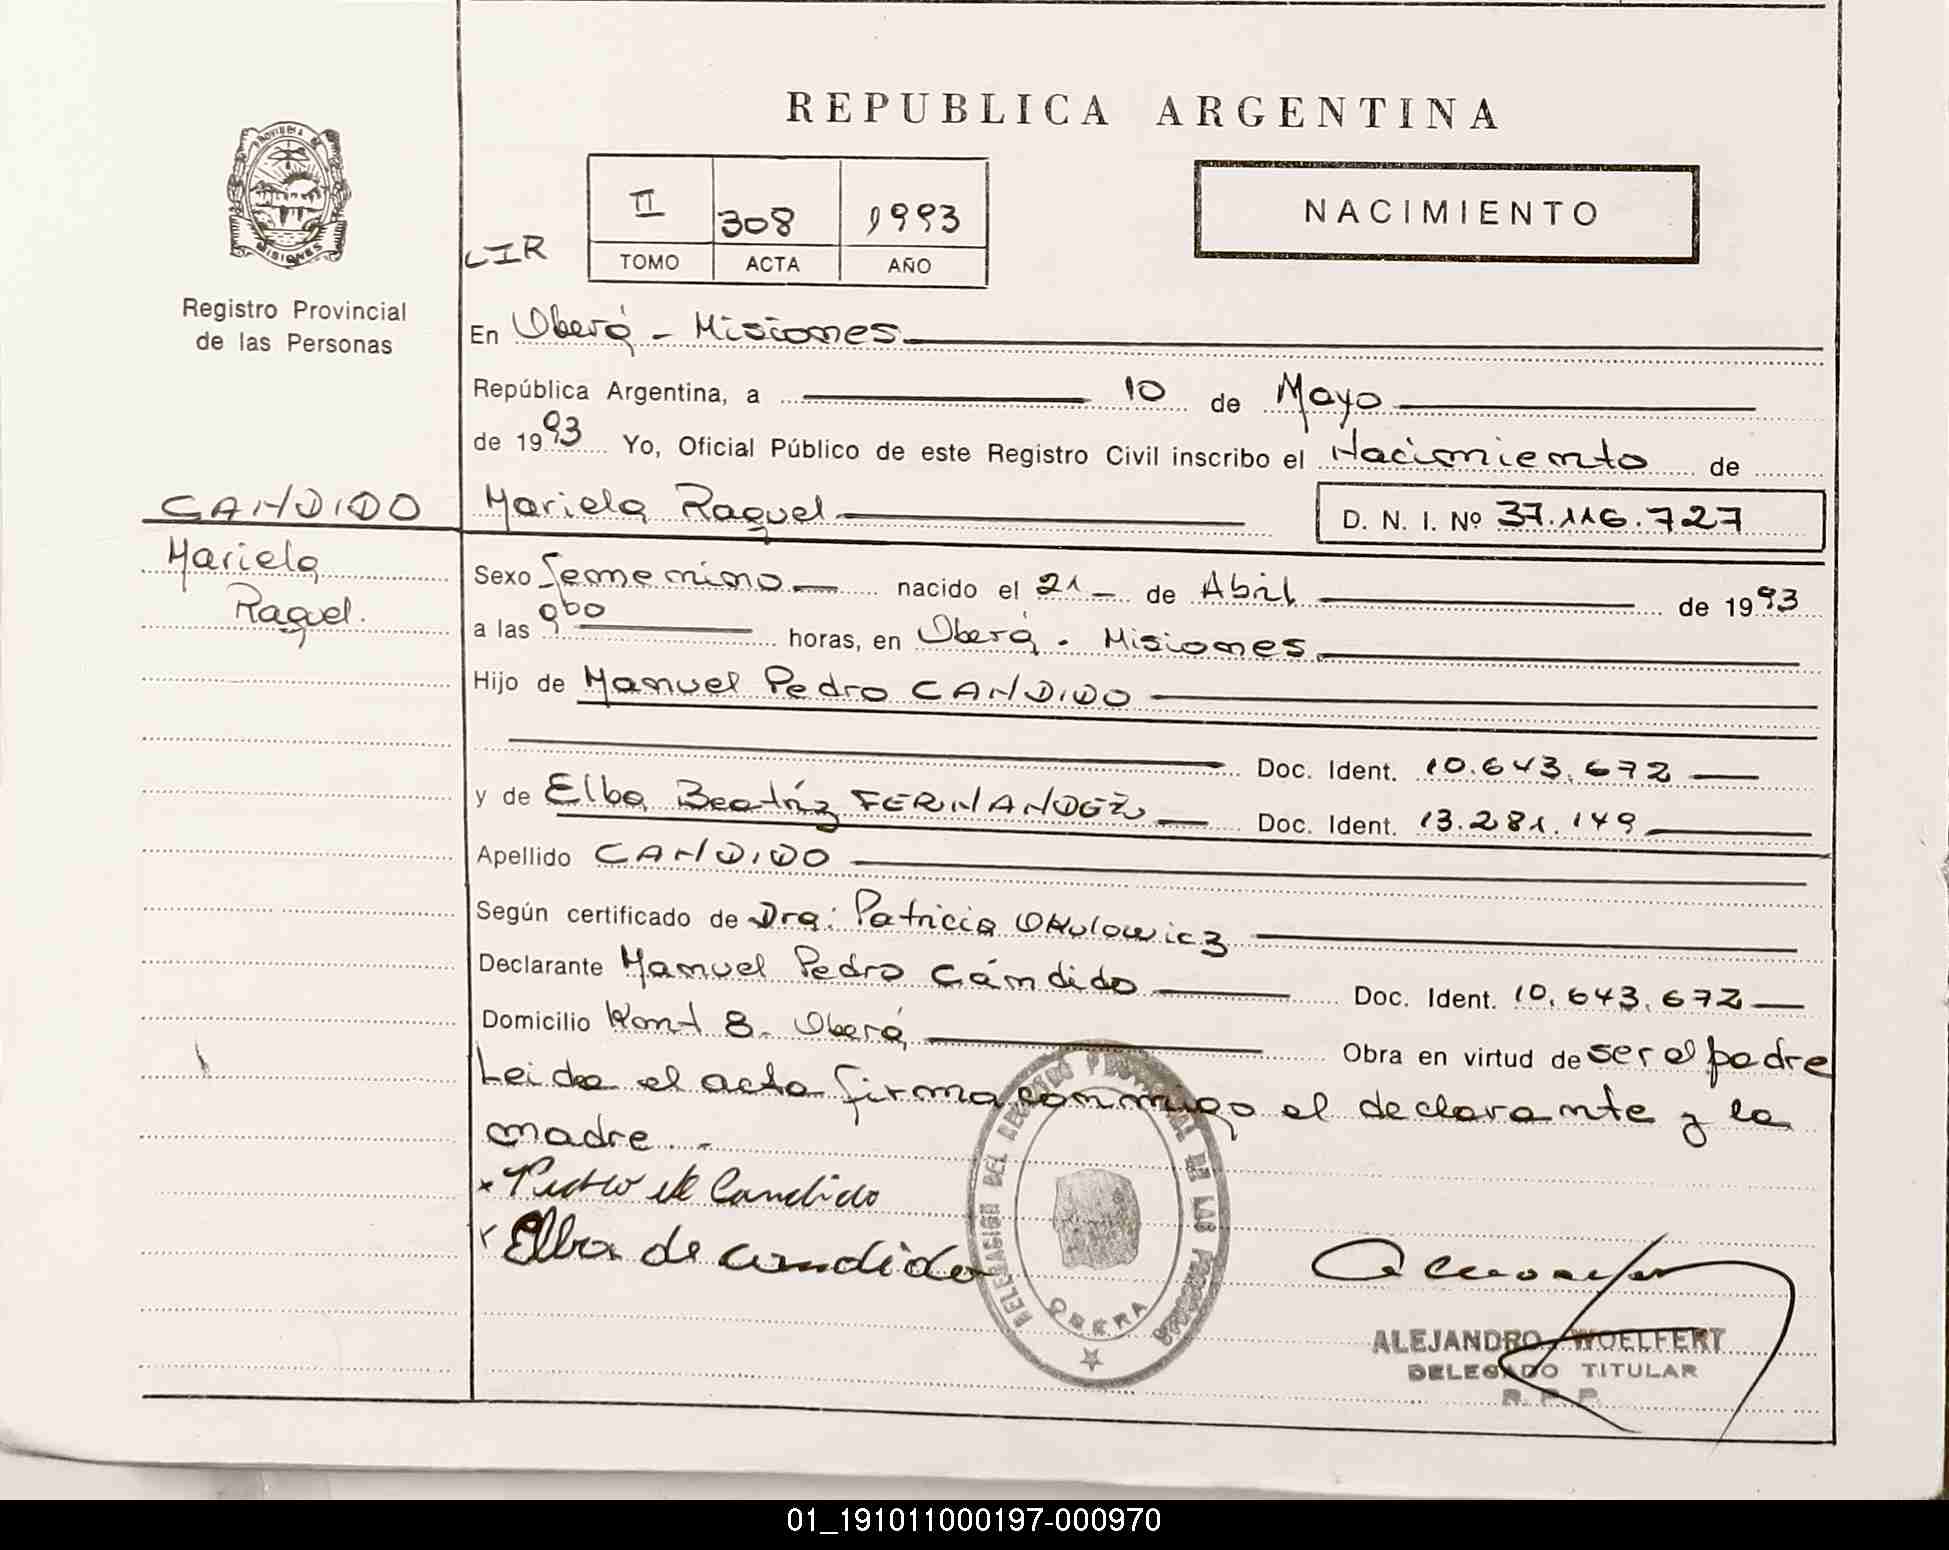 REPUBLICA ARGENTINA
PROVINCIA DE MISIONES
Registro Provincial
de las Personas
CIR
II 308 1993
TOMO ACTA AÑO
NACIMIENTO
En Oberá - Misiones
República Argentina, a 10 de Mayo
de 1993 Yo, Oficial Público de este Registro Civil inscribo el Nacimiento de
CANDIDO
Mariela Raquel D. N. I. Nº 37.116.727
Mariela
Raquel.
Sexo femenino nacido el 21 de Abril de 1993
a las 9 horas, en Oberá - Misiones
Hijo de Manuel Pedro CANDIDO
Doc. Ident. 10.643.672
y de Elba Beatríz FERNANDEZ Doc. Ident. 13.281.149
Apellido CANDIDO
Según certificado de Dra: Patricia OKulowicz
Declarante Manuel Pedro Cándido Doc. Ident. 10.643.672
Domicilio Kont 8. Oberá Obra en virtud de ser el padre
Leida el acta firma conmigo el declarante y la
madre.-
x Pedro M Candido
x Elba de candido
DELEGACION DEL REGISTRO PROVINCIAL DE LAS PERSONAS
OBERA
ALEJANDRO WOELFERT
DELEGADO TITULAR
R. P. P.
01_191011000197-000970